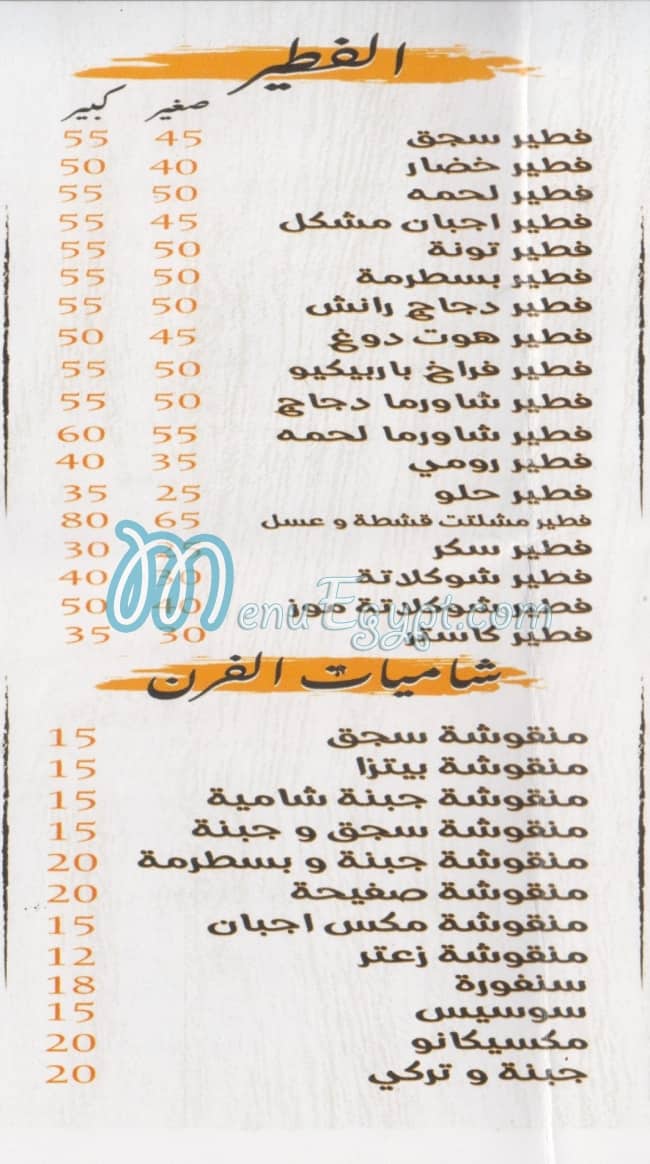 الفطير
صغير كبير
فطير سجق 45 55
فطير خضار 40 50
فطير لحمه 50 55
فطير اجبان مشكل 45 55
فطير تونة 50 55
فطير بسطرمة 50 55
فطير دجاج رانش 50 55
فطير هوت دوغ 45 50
فطير فراخ باربيكيو 50 55
فطير شاورما دجاج 50 55
فطير شاورما لحمه 55 60
فطير رومي 35 40
فطير حلو 25 35
فطير مشلتت قشطة و عسل 65 80
فطير سكر 25 30
فطير شوكلاتة 30 40
فطير شوكلاتة موز 40 50
فطير كاستر 30 35
MenuEgypt.com
شاميات الفرن
منقوشة سجق 15
منقوشة بيتزا 15
منقوشة جبنة شامية 15
منقوشة سجق و جبنة 15
منقوشة جبنة و بسطرمة 20
منقوشة صفيحة 20
منقوشة مكس اجبان 15
منقوشة زعتر 12
سنغورة 18
سوسيس 15
مكسيكانو 20
جبنة و تركي 20